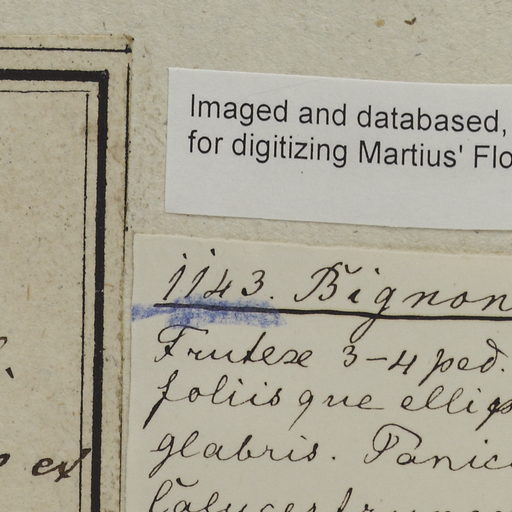 Imaged and databased,
for digitizing Martius' Flo
1143. Bignon
Frutex 3-4 ped.
foliisque ellip
glabris. Panic
ex